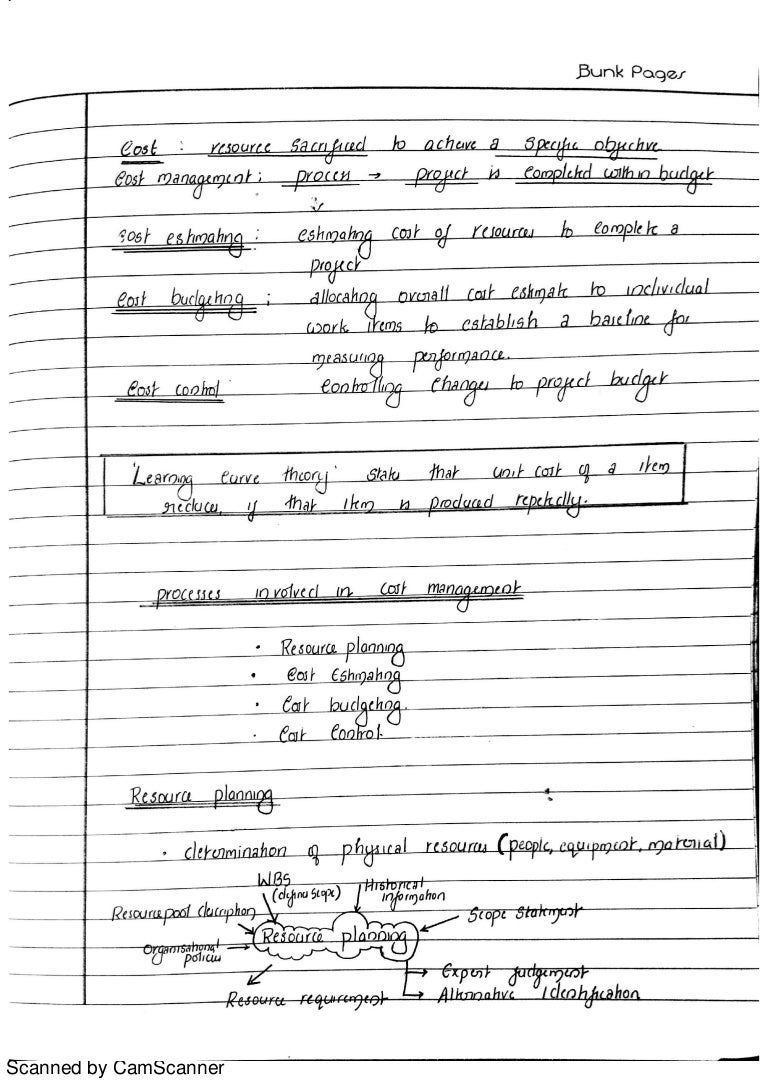 Bunk Pages
Cost : resource sacrificed to acheive a specific objective
Cost management : process → project is completed within budget
Cost estimating : estimating cost of resources to complete a
project
Cost budgeting : allocating overall cost estimate to individual
work items to establish a baseline for
measuring performance.
Cost control controlling changes to project budget
'Learning curve theory' states that unit cost of a item
reduces, if that item is produced repetedly.
processes involved in cost management
• Resource planning
• Cost Estimating
• Cost budgeting.
• Cost Control.
Resource planning
• determination of physical resources (people, equipment, material)
WBS
(define scope)
Historical
information
Resource pool description
Scope Statement
Resource planning
Organisational
policies
Expert judgement
Resource requirement
Alternative Identification
Scanned by CamScanner